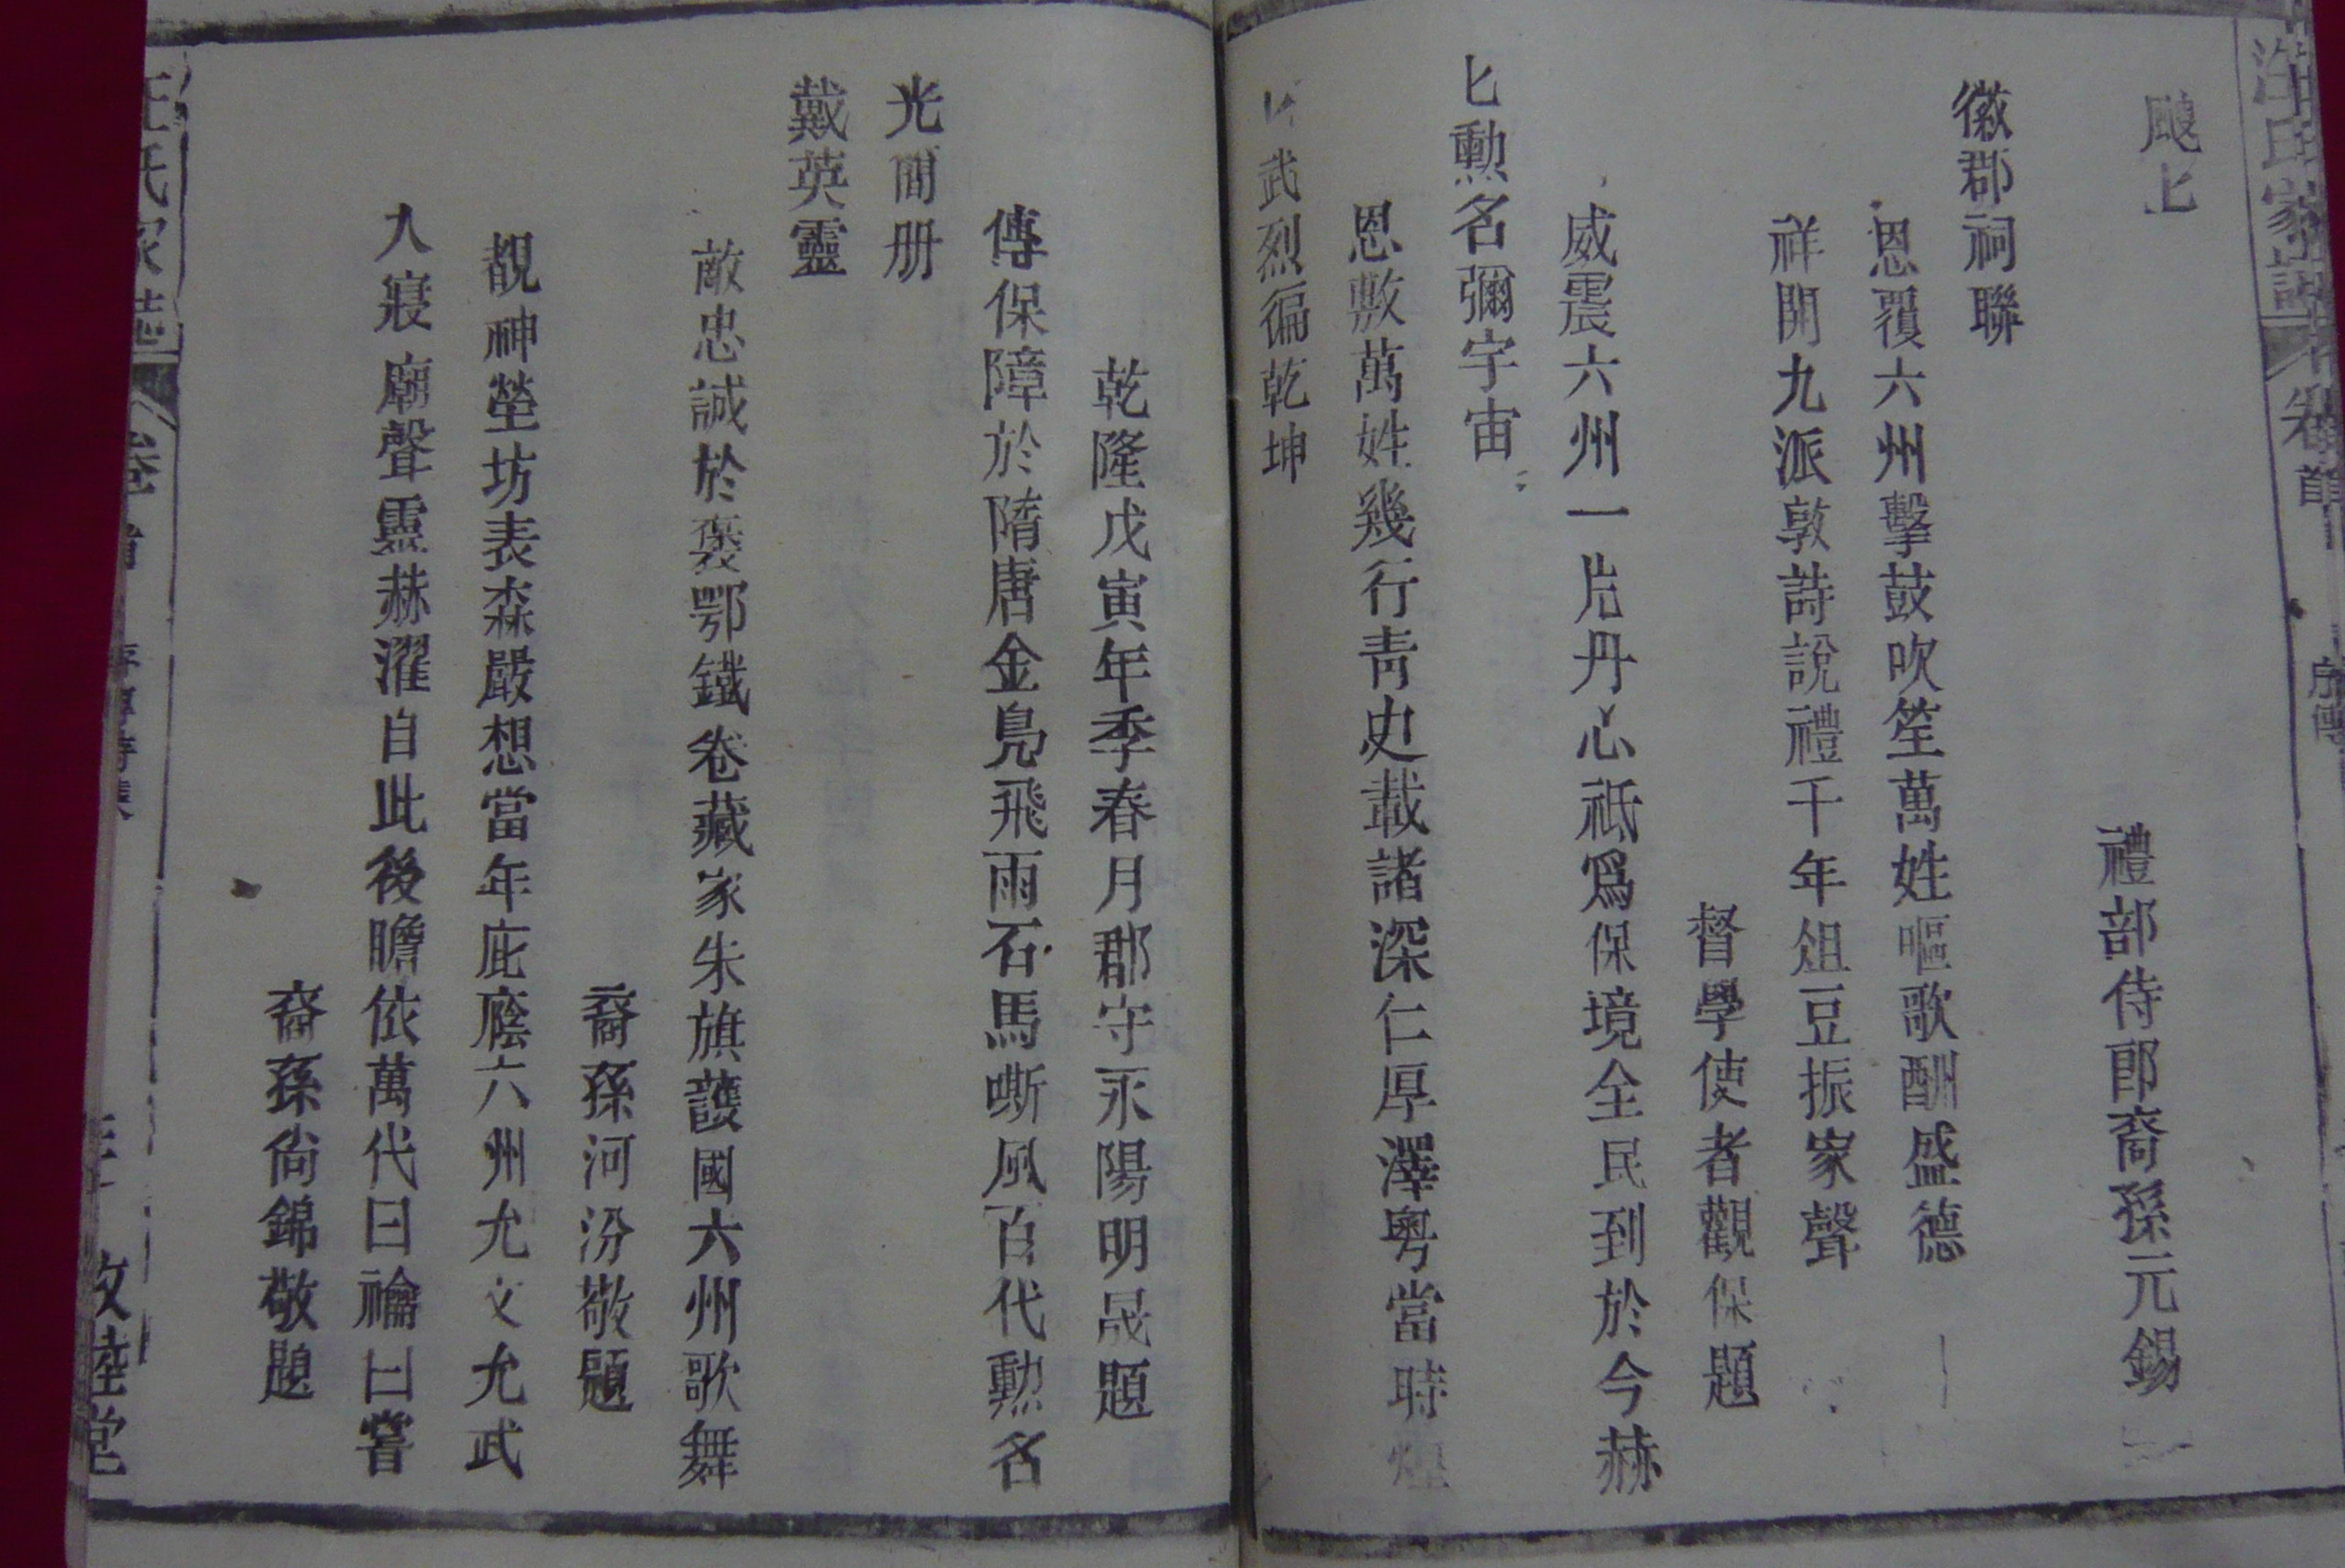 汪氏家誌
卷首
序傳
颷匕
禮部侍郎裔孫元錫
徽郡祠聯
恩覆六州擊鼓吹笙萬姓嘔歌酬盛德
祥開九派敦詩說禮千年俎豆振家聲
督學使者觀保題
威震六州一片丹心祇爲保境全民到於今赫
匕勲名彌宇宙
恩敷萬姓幾行青史載諸深仁厚澤粤當時煌
匕武烈徧乾坤
乾隆戊寅年季春月郡守永陽明晟題
傳保障於隋唐金鳧飛雨石馬嘶風百代勲名
光簡册
戴英靈
敵忠誠於褒鄂鐵卷藏家朱旗護國六州歌舞
裔孫河汾敬題
覩神塋坊表森嚴想當年庇廕六州允文允武
入寢廟聲靈赫濯自此後瞻依萬代曰禴曰嘗
裔孫尙錦敬題
汪氏家誌
卷首
敦睦堂